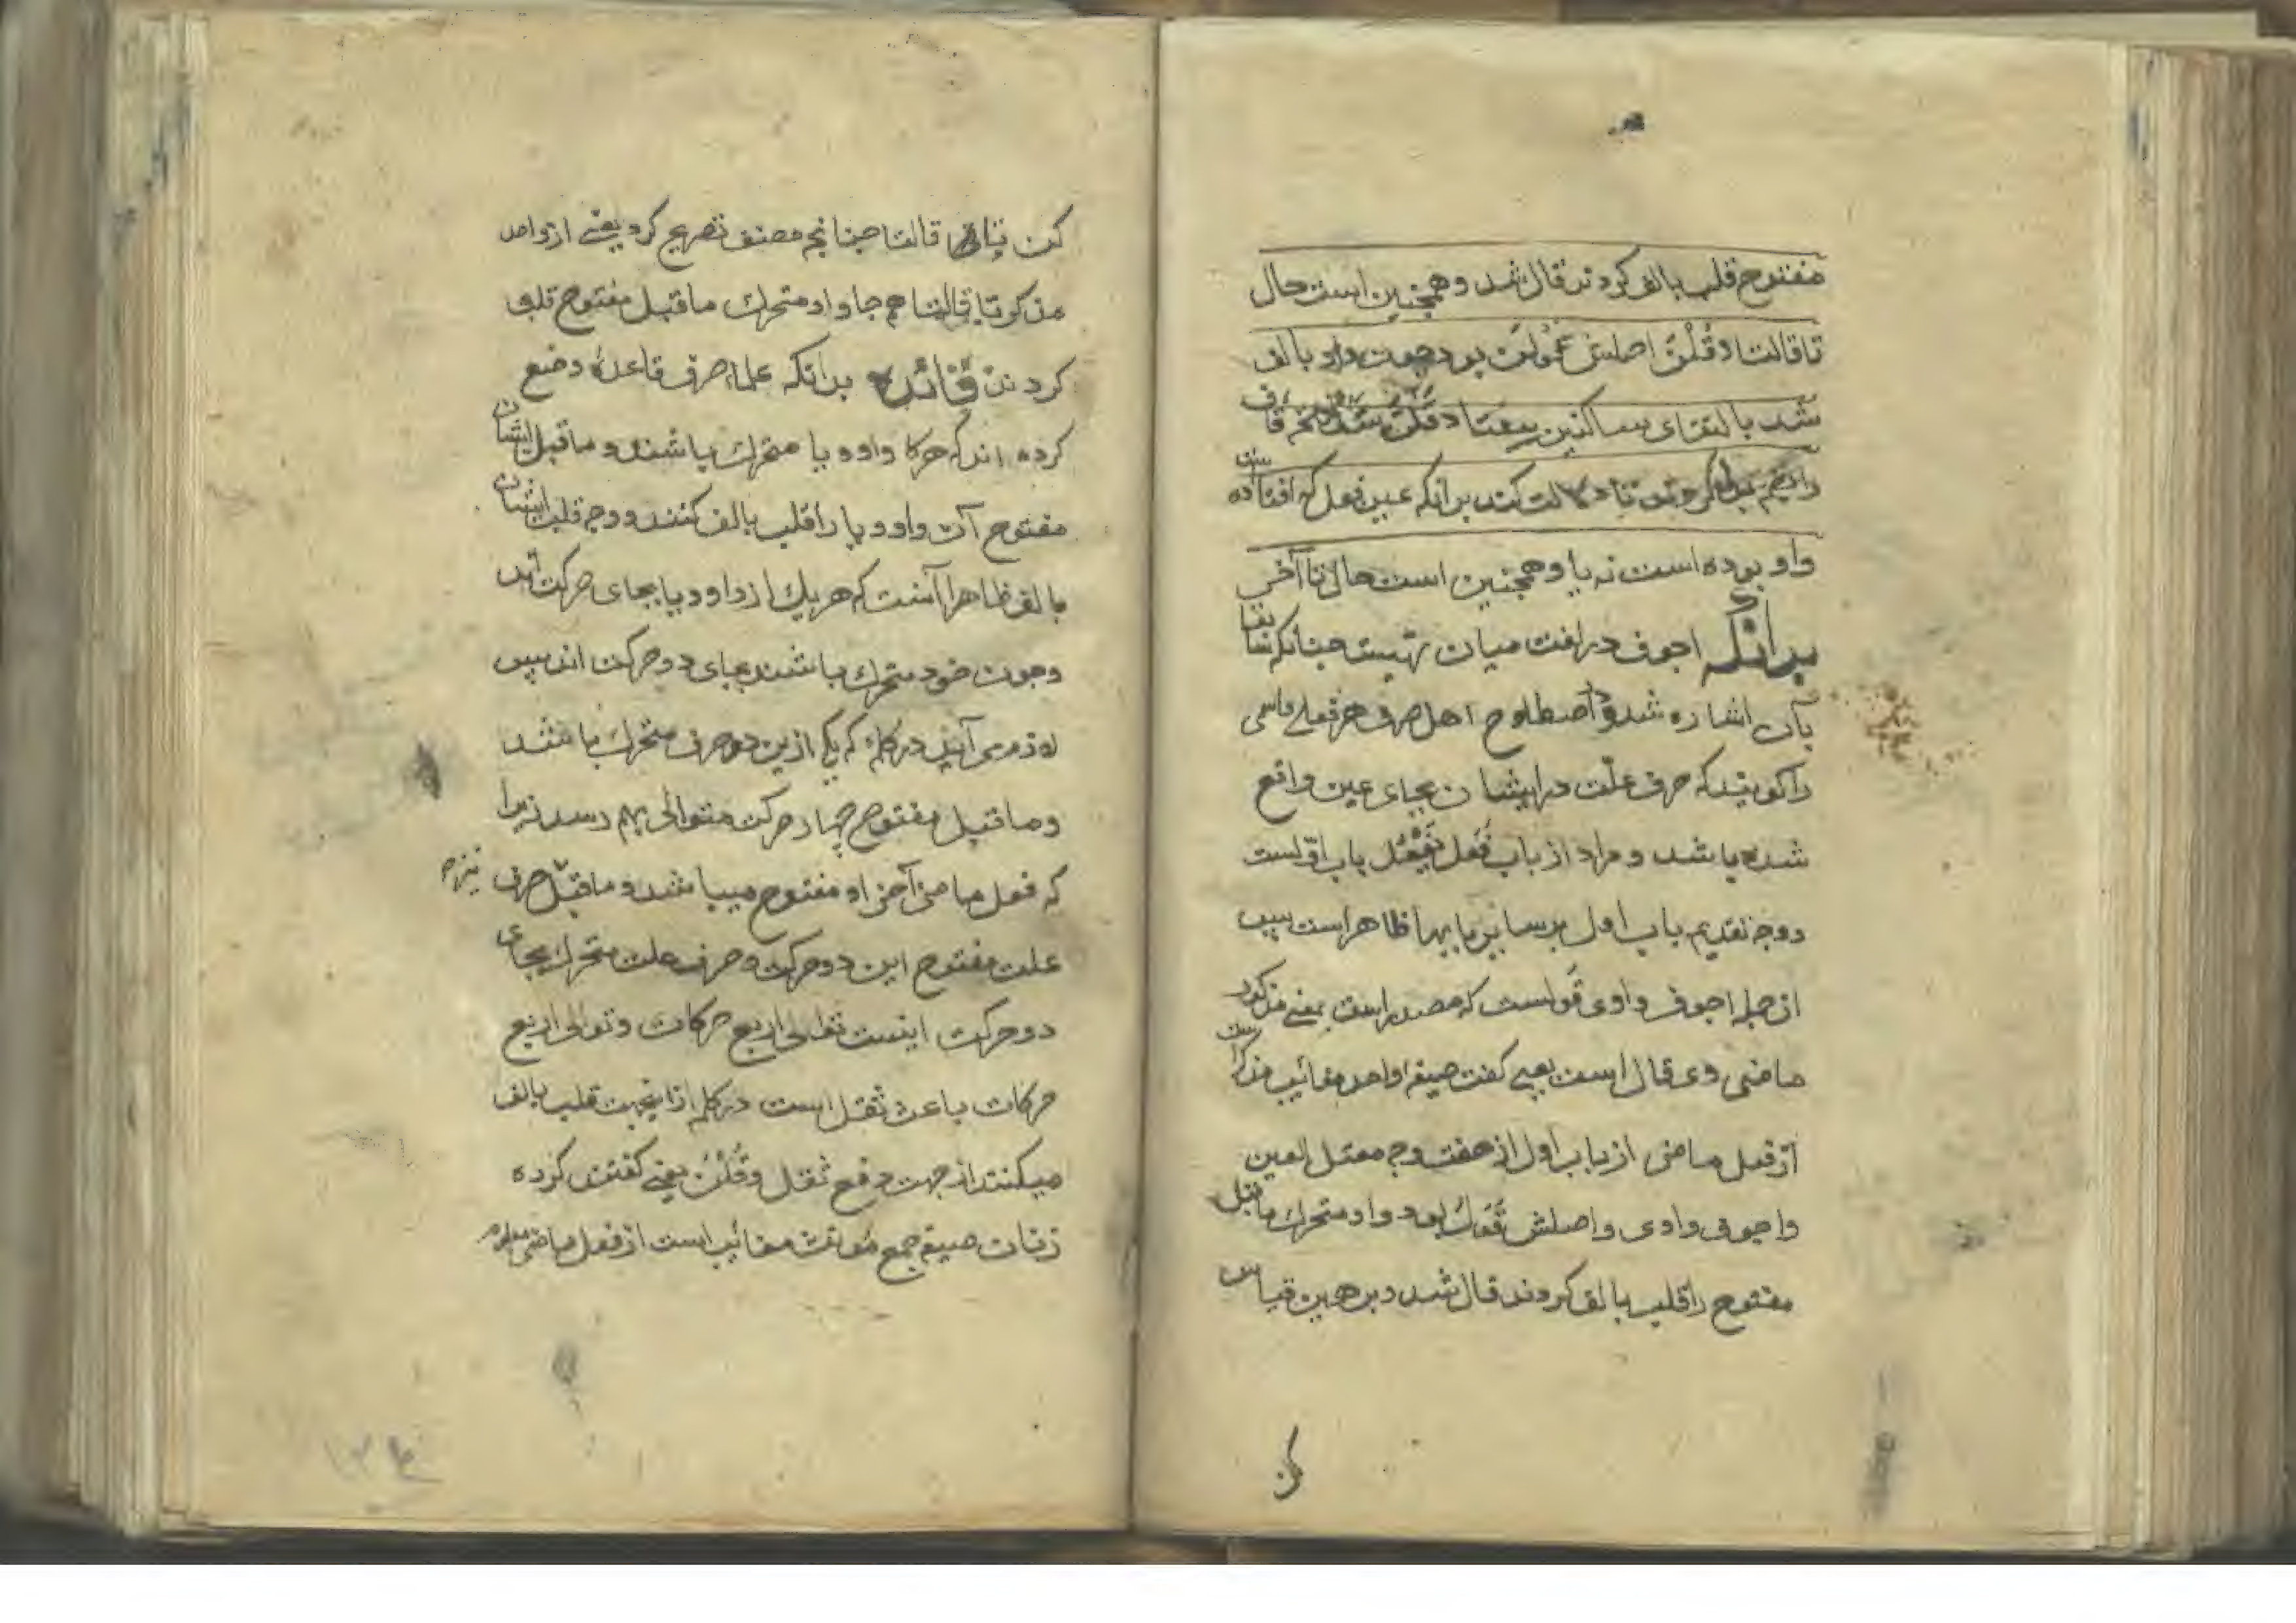 مفتوح قلب بالف کردند قال شد و همچنین است حال
تا قالتا و قُلْنَ اصلش قَوَلْنَ بود چون واو بالف
شد بالتقای ساکنین بیفتاد قَلْنَ شد فتحه قاف
را بضم بدل کردند تا دلالت کند برانکه عین فعل که افتاده است
واو بوده است نه یا و همچنین است حال تا آخر
بدانکه اجوف در لغت میان تهیست چنانکه سابقا
بآن اشاره شد و در اصطلاح اهل صرف هر فعلی و اسمی
را کویند که حرف علّت در ایشان بجای عین واقع
شده باشد و مراد از باب فَعَلَ یَفْعُلُ باب اوّلست
و وجه تقدیم باب اول بر سایر بابها ظاهر است پس
از جمله اجوف واوی قَولست که مصدر است بمعنی مذکور
ماضی وی قال است یعنی کفت صیغه واحد مغائب مذکر است
از فعل ماضی از باب اول از هفت وجه معتل العین
و اجوف واوی و اصلش قَوَلَ بود واو متحرك ماقبل
مفتوح را قلب بالف کردند قال شد و بر همین قیاس
کن
کن تا قالتا چنانچه مصنف تصریح کرد یعنی از واحد
مذکر تا قالتا هر جا واو متحرك ماقبل مفتوح قلب
کردند فَائده بدانکه علماء صرف قاعدهٔ وضع
کرده اند که هرکا واو و یا متحرك باشند و ماقبل ایشان
مفتوح آن واو و یا را قلب بالف کنند و وجه قلب ایشان
بالف ظاهرا آنست که هر یك از واو و یا بجای حرکت اند
و چون خود متحرك باشند بجای دو حرکت اند پس
لازم می آید در کلمه که یکی ازین دو حرف متحرك باشد
و ماقبل مفتوح چهار حرکت متوالی بهم رسد زیرا
که فعل ماضی آخر او مفتوح میباشد و ماقبل حرف نیز
علت مفتوح این دو حرکت و حرف علت متحرك بجای
دو حرکت اینست توالی اربع حرکات و توالی اربع
حرکات باعث ثقل است در کلمه ازاینجهت قلب بالف
میکنند از جهت دفع ثقل و قُلْنَ یعنی کفتند کرده
زنان صیغه جمع مؤنث مغائب است از فعل ماضی معلوم